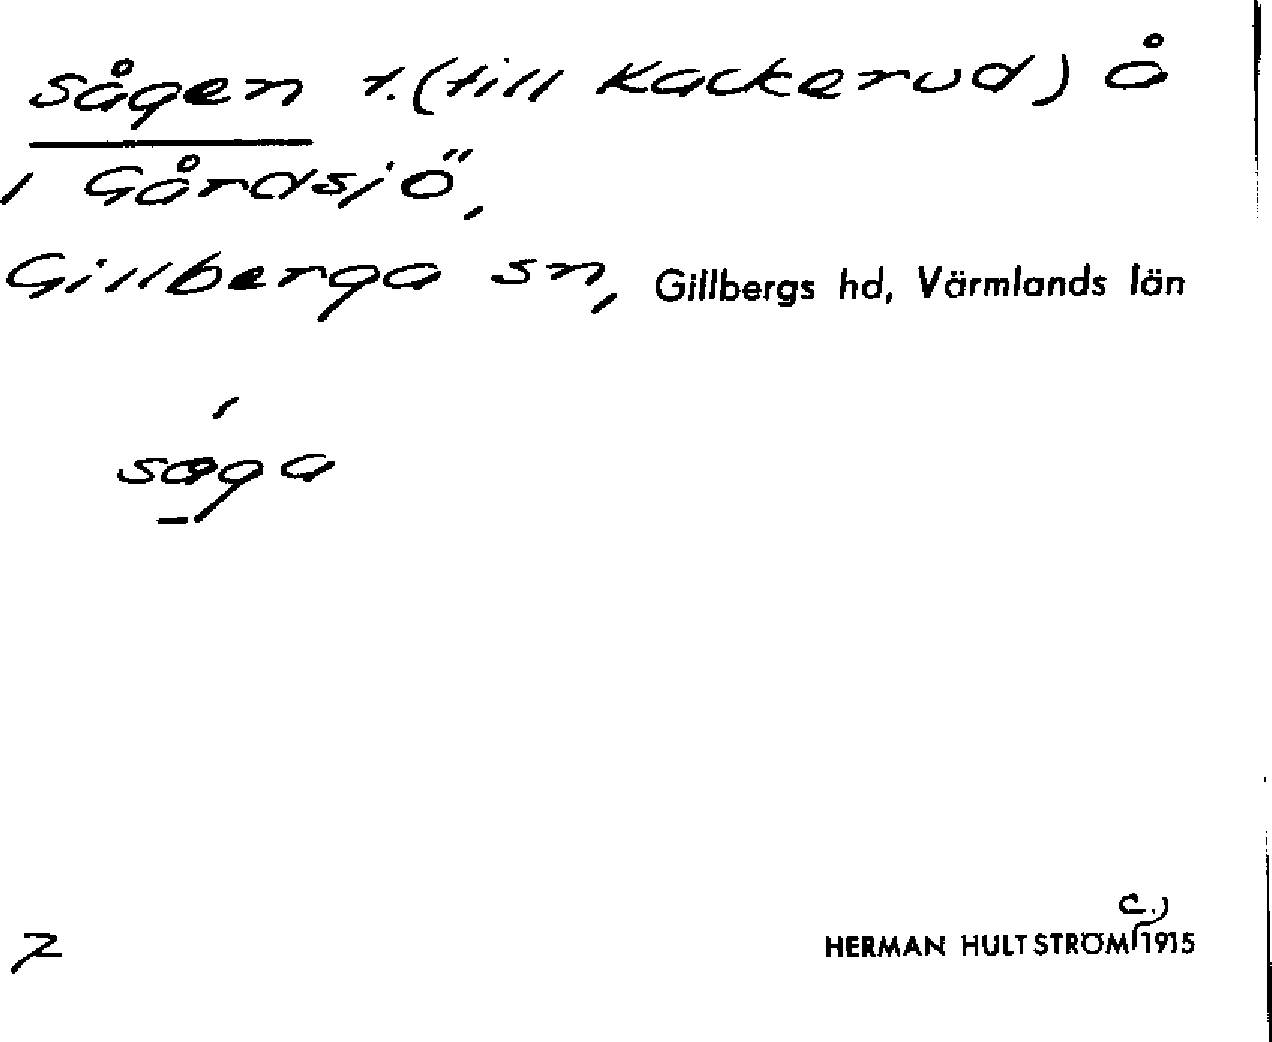 Sågen t. (till Kackerud) Å
i Gårdsjö,
Gillberga sn, Gillbergs hd, Värmlands län
såga
7
HERMAN HULTSTRÖM (c.) 1915